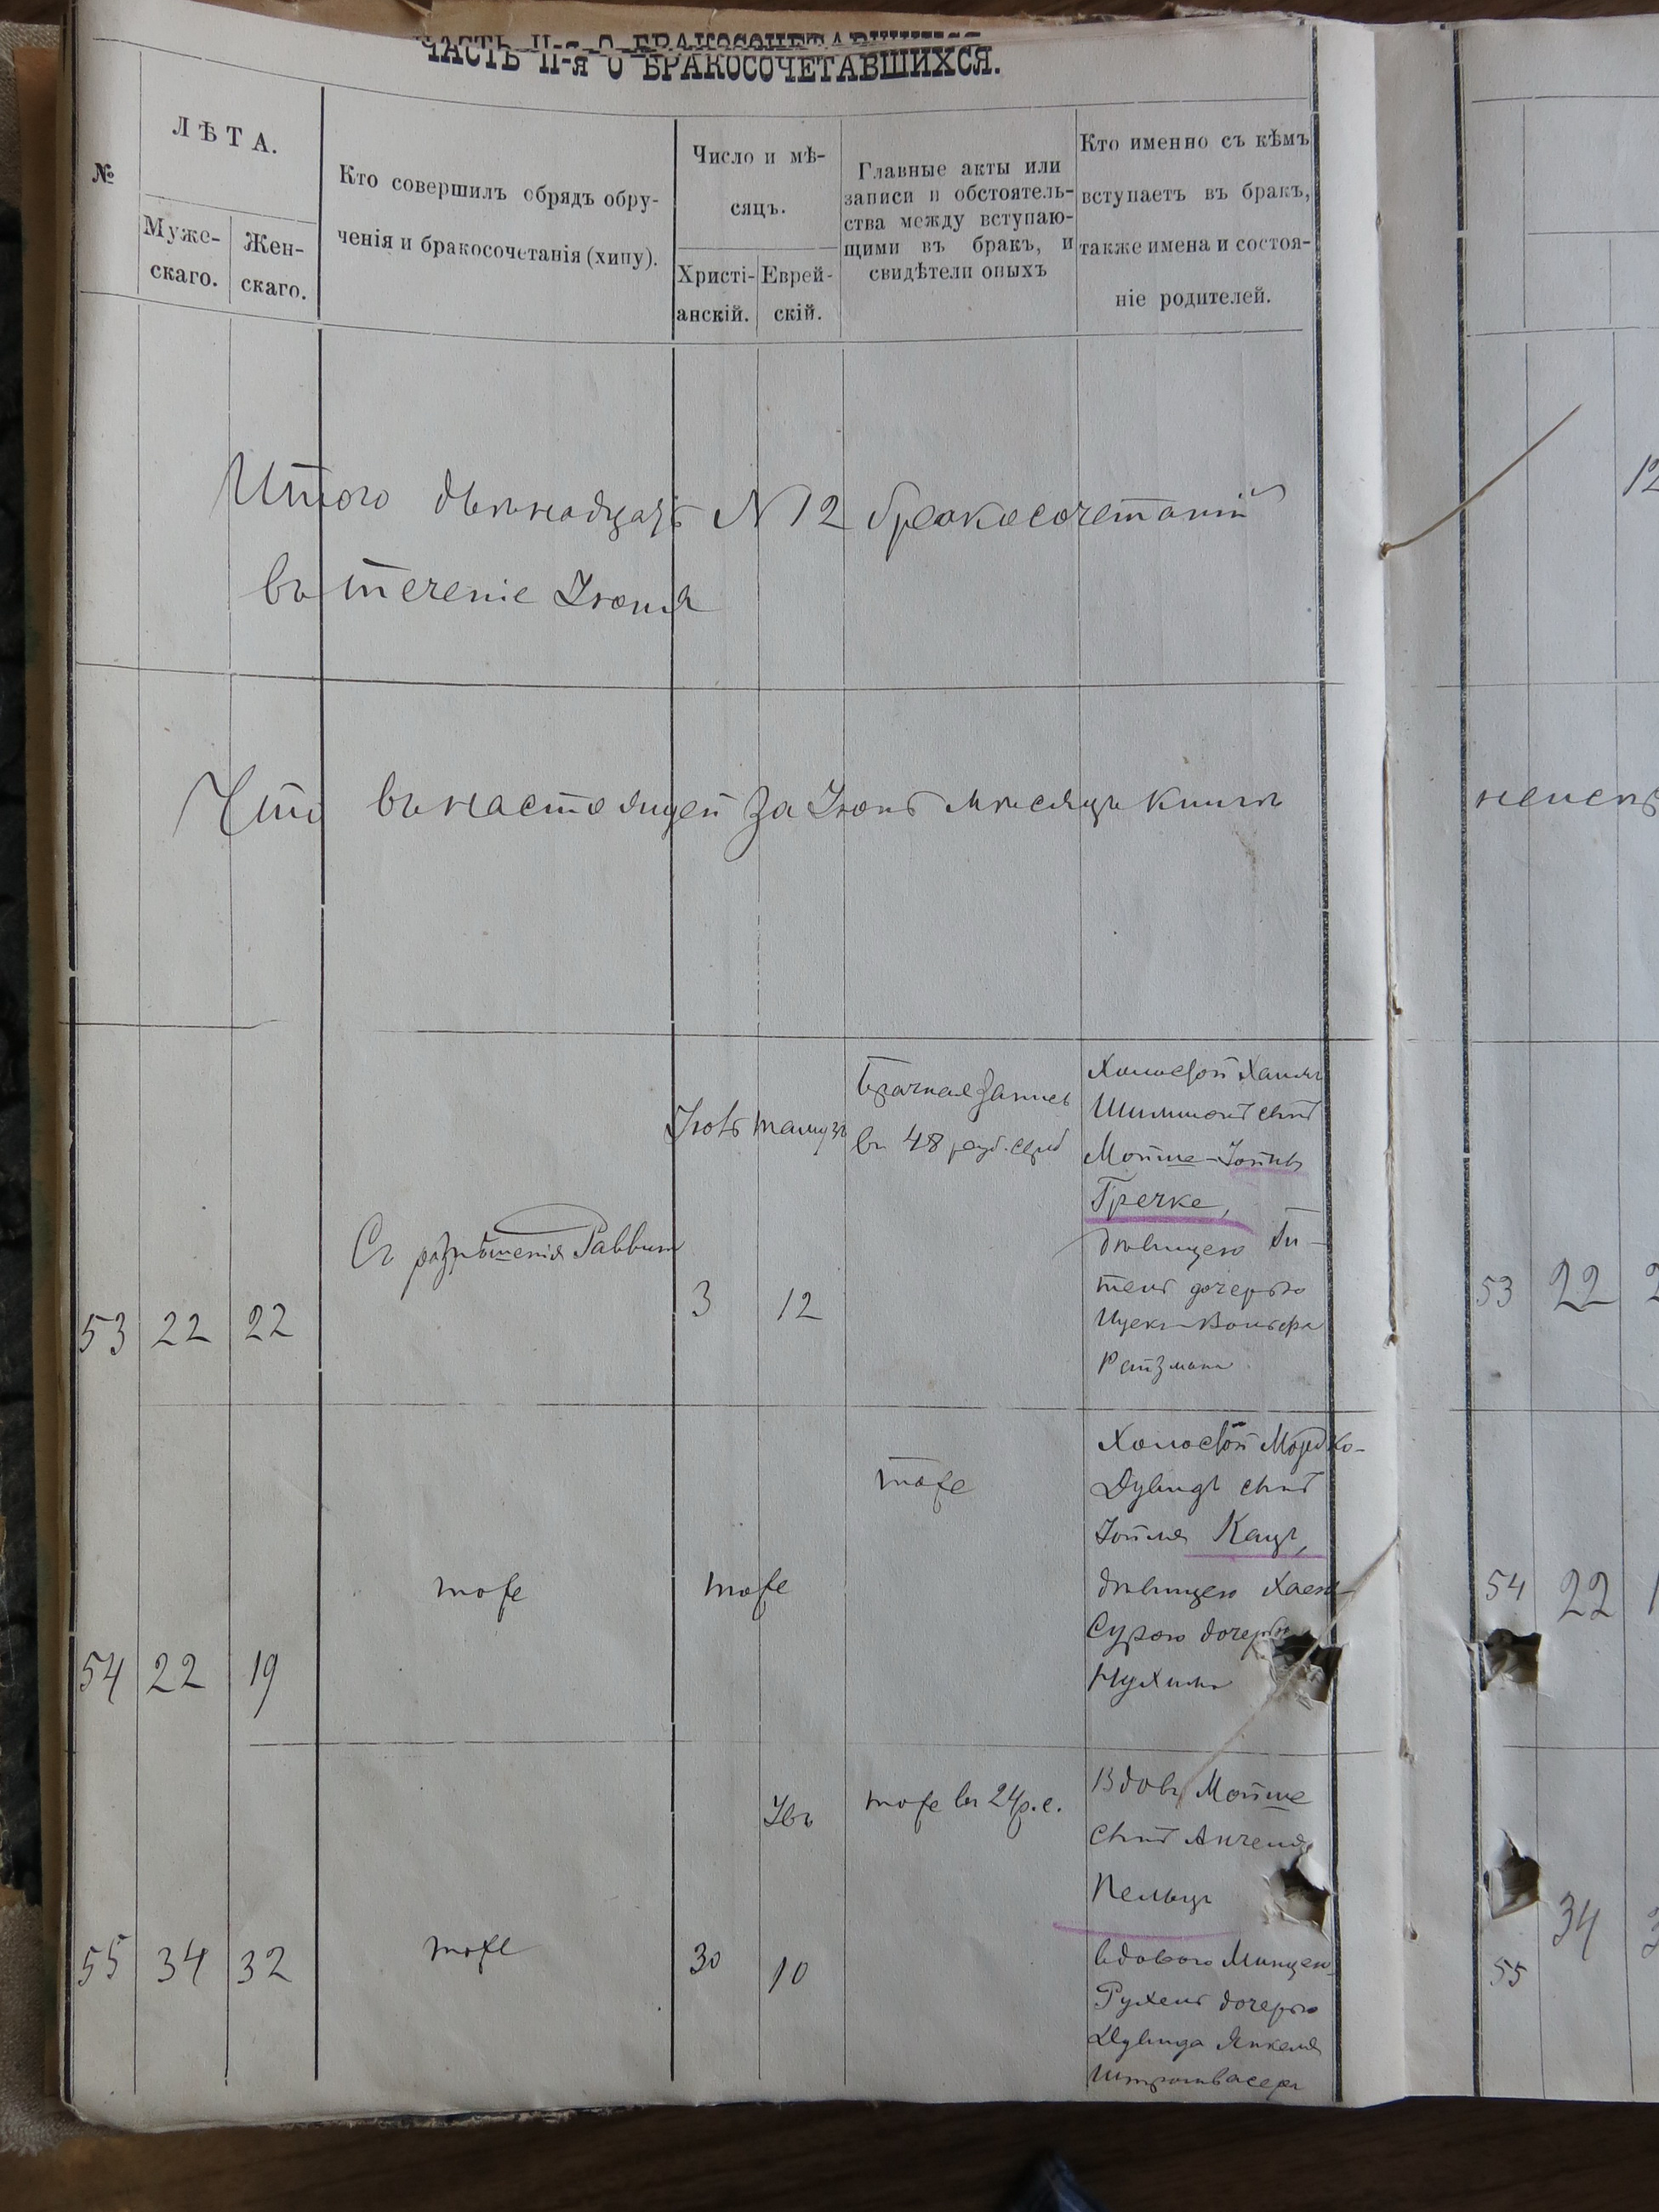 ЧАСТЬ II-я О БРАКОСОЧЕТАВШИХСЯ.
№
ЛѢТА.
Муже-
скаго.
Жен-
скаго.
Кто совершилъ обрядъ обру-
ченія и бракосочетанія (хипу).
Число и мѣ-
сяцъ.
Христі-
анскій.
Еврей-
скій.
Главные акты или
записи и обстоятель-
ства между вступаю-
щими въ бракъ, и
свидѣтели оныхъ
Кто именно съ кѣмъ
вступаетъ въ бракъ,
также имена и состоя-
ніе родителей.
Итого двѣнадцать N 12 бракосочетаній
12
въ теченіе Іюня
Что въ настоящей за Іюнь мѣсяцъ книгѣ
53 22 22
Съ разрѣшенія Раввина
Іюль
3
тамузъ
12
Брачная запись
въ 48 руб. сереб
Холостой Хаимъ
Шимшонъ сынъ
Мовше-
Гречке,
дѣвицею
дочерью
Ицекъ-Вольфа
53 22
54 22 19
тоже
тоже
тоже
Холостой Мордко-
Дувидъ сынъ
Кацъ,
дѣвицею Хаею-
Сурою дочерью
Нухима
54 22
55 34 32
тоже
30
Явъ
10
тоже въ 24 р. с.
Вдовъ Мовше
сынъ Анчеля
Пельцъ
вдовою Минцею-
дочерью
Дувида Янкеля
55 34